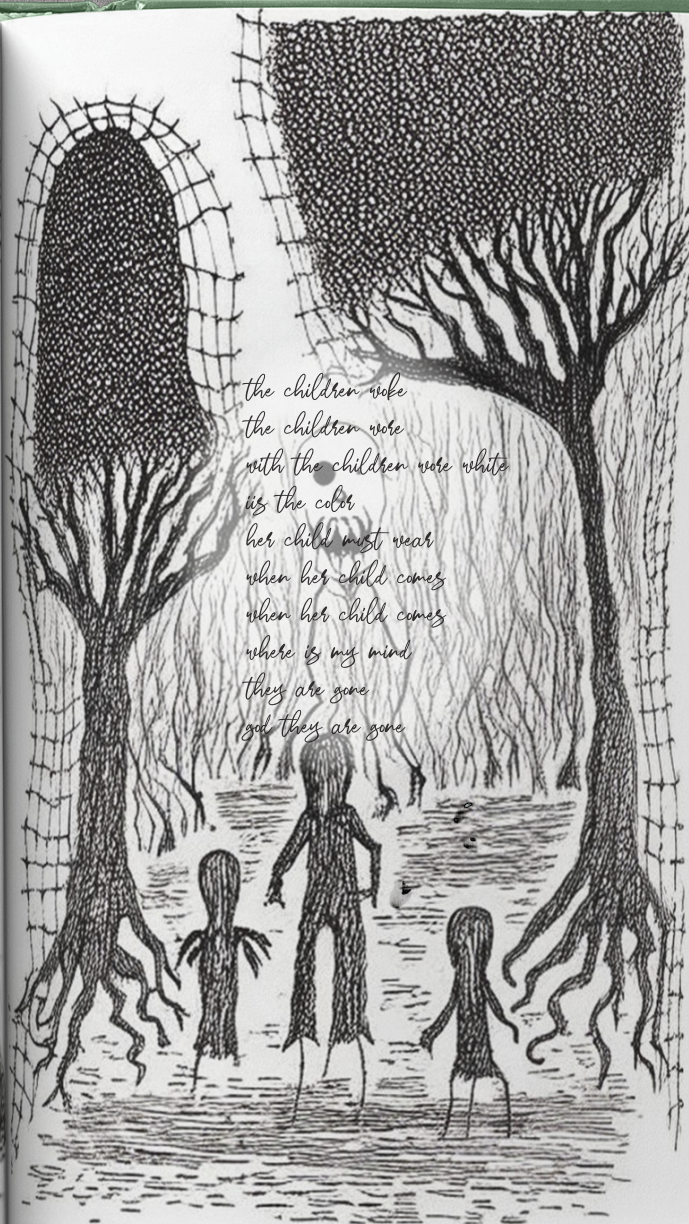 the children woke
the children wore
with the children wore white
iis the color
her child must wear
when her child comes
when her child comes
where is my mind
they are gone
god they are gone